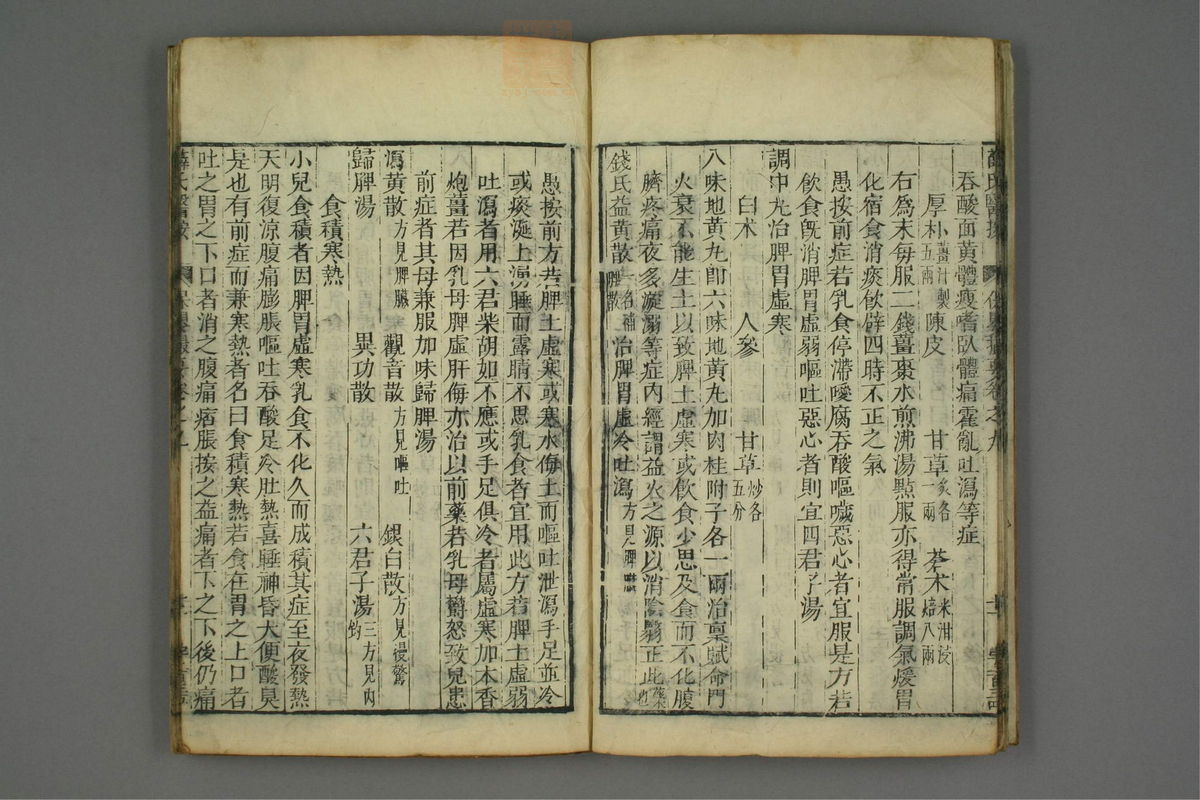 吞酸面黃體瘦嗜臥體痛霍亂吐瀉等症
厚朴薑汁製五兩 陳皮 甘草炙各一兩 蒼术米泔浸焙八兩
右爲末每服二錢薑棗水煎沸湯㸃服亦得常服調氣煖胃
化宿食消痰飲辟四時不正之氣
愚按前症若乳食停滯噯腐吞酸嘔噦惡心者宜服是方若
飲食旣消脾胃虛弱嘔吐惡心者則宜四君子湯
調中丸治脾胃虛寒
白术 人參 甘草炒各五分
八味地黃丸卽六味地黃丸加肉桂附子各一兩治禀賦命門
火衰不能生土以致脾土虛寒或飲食少思及食而不化腹
臍疼痛夜多漩溺等症內經謂益火之源以消陰翳正此藥也
錢氏益黃散一名補脾散治脾胃虛冷吐瀉方見脾臟
愚按前方若脾土虛寒或寒水侮土而嘔吐泄瀉手足並冷
或痰涎上湧睡而露睛不思乳食者宜用此方若脾土虛弱
吐瀉者用六君柴胡如不應或手足俱冷者屬虛寒加木香
炮薑若因乳母脾虛肝侮亦治以前藥若乳母鬱怒致兒患
前症者其母兼服加味歸脾湯
瀉黃散方見脾臟 觀音散方見嘔吐 銀白散方見慢驚
歸脾湯 異功散 六君子湯三方見內釣
食積寒熱
小兒食積者因脾胃虛寒乳食不化久而成積其症至夜發熱
天明復涼腹痛膨脹嘔吐吞酸足冷肚熱喜睡神昏大便酸臭
是也有前症而兼寒熱者名曰食積寒熱若食在胃之上口者
吐之胃之下口者消之腹痛痞脹按之益痛者下之下後仍痛